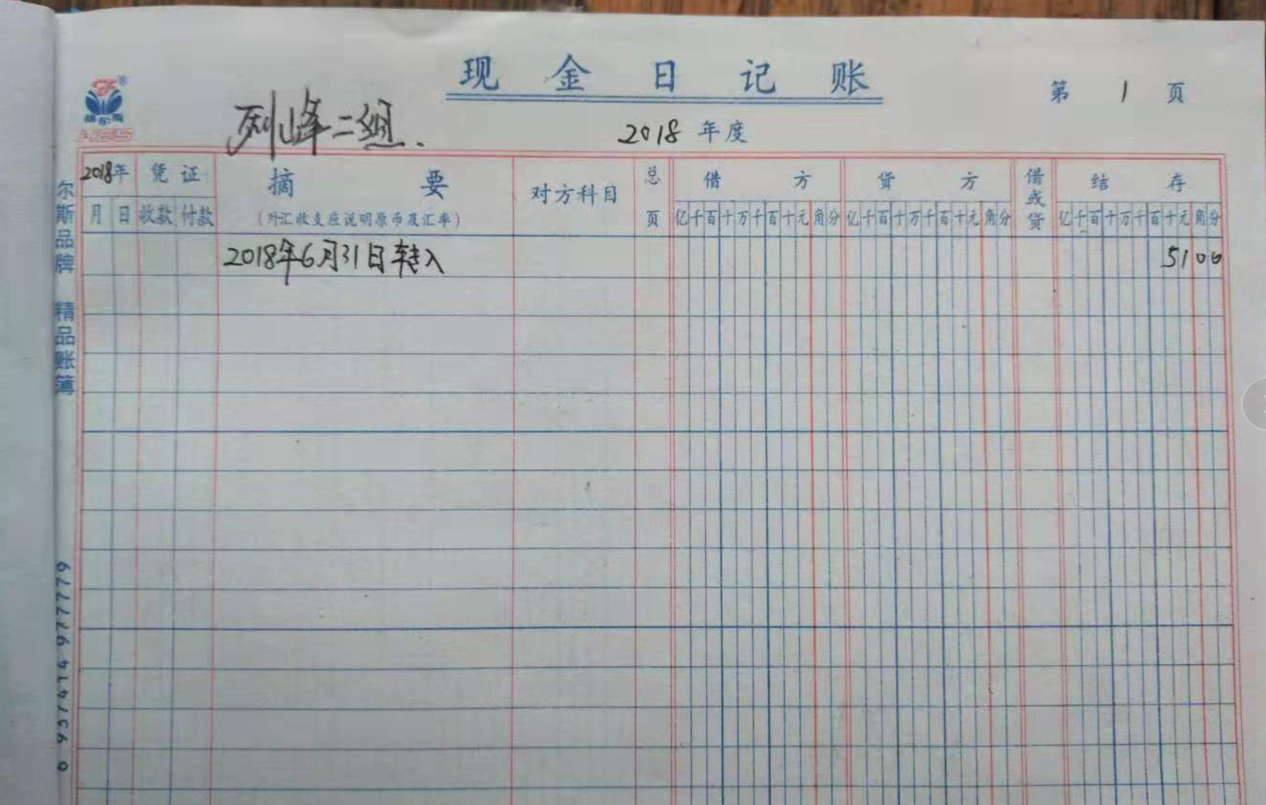 现金日记账
第 1 页
列峰二组.
2018 年度
HES
2018年 凭证 摘要 对方科目 总页 借方 贷方 借或贷 结存
月 日 收款 付款 (外汇收支应说明原币及汇率) 亿千百十万千百十元角分 亿千百十万千百十元角分 亿千百十万千百十元角分
2018年6月31日转入 5100
尔斯品牌 精品账簿